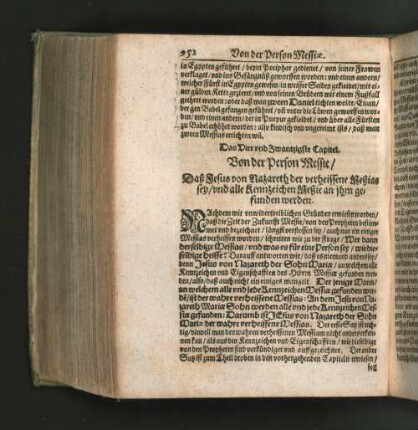 252 Von der Person Messiæ.
in Egypten geführet / beym Potiphar gedienet / von seiner Frawen
verklaget / vnd ins Gefängnüß geworffen worden: vnd einen andern /
welcher Fürst in Egypten gewesen / in weisser Seiden gekleidet / mit ei-
ner gülden Ketten gezieret / vnd von seinen Brüdern mit einem Fußfall
geehret worden: oder daß man zween Daniel tichten wolte: Einen /
der gen Babel gefangen geführet / vnd vnter die Löwen geworffen wor-
den / vnd einen andern / der in Purpur gekleidet / vnd vber alle Fürsten
zu Babel erhöhet worden: also kindisch vnd vngereimt ists / daß man
zween Messias ertichten wil.
Das Vier vnd Zwantzigste Capitel.
Von der Person Messie /
Daß Jesus von Nazareth der verheissene Meßias
sey / vnd alle Kennzeichen Meßie an jhm ge-
funden werden.
NAchdem wir vnwidertreiblichen Gründen erwiesen worden /
daß die Zeit der Zukunfft Messie / von den Propheten bestim-
met vnd bezeichnet / längst verflossen sey / auch nur ein einiger
Messias verheissen worden / schreiten wir zu der Frage / Wer dann
derselbige Messias / vnd was es für eine Person sey / wie die-
selbige heisse? Darauff antworten wir / daß es niemand anders sey /
denn Jesus von Nazareth der Sohn Mariæ / an welchem alle
Kennzeichen vnd Eigenschafften des Herrn Messiæ gefunden wer-
den / also / daß auch nicht ein einiges mangelt. Der jenige Mann /
an welchem alle vnd jede Kennzeichen Messiæ gefunden wer-
den / ist der wahre verheissene Messias: An dem Jesu von Na-
zareth Mariæ Sohn werden alle vnd jede Kennzeichen Mes-
siæ gefunden: Darumb ist JEsus von Nazareth der Sohn
Mariæ der wahre verheissene Messias. Der erste Satz ist rich-
tig / dieweil man den wahren verheissenen Messiam nicht anders erken-
nen kan / als aus den Kennzeichen vnd Eigenschafften / wie dieselbige
von den Propheten sind verkündiget vnd auffgezeichnet. Der ander
Satz ist zum Theil droben in den vorhergehenden Capiteln erwiesen /
soll